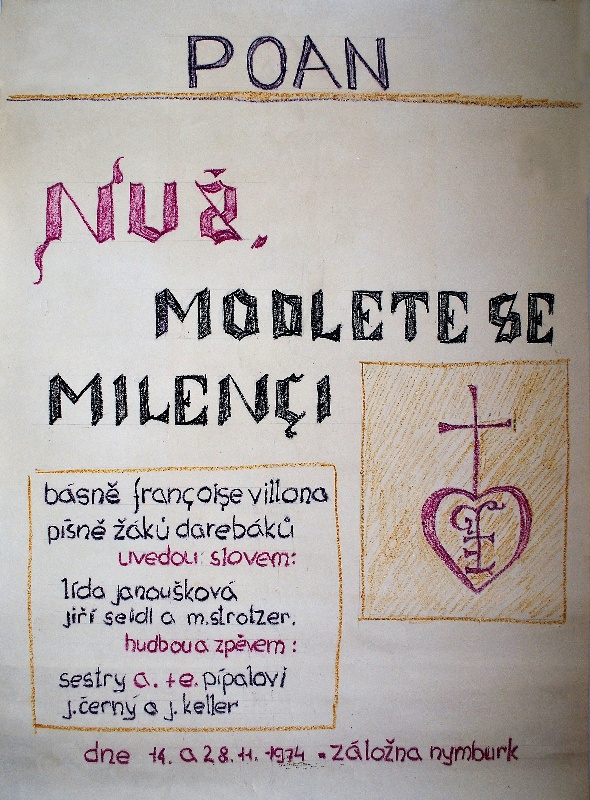 POAN
Nuž,
MODLETE SE
MILENÇI
básně françoise villona
písně žáků darebáků
uvedou slovem:
lída janoušková
jiří seidl a m.strotzer.
hudbou a zpěvem:
sestry a. + e. pípalovi
j.černý a j.keller
dne 14. a 28.11.1974 - záložna nymburk